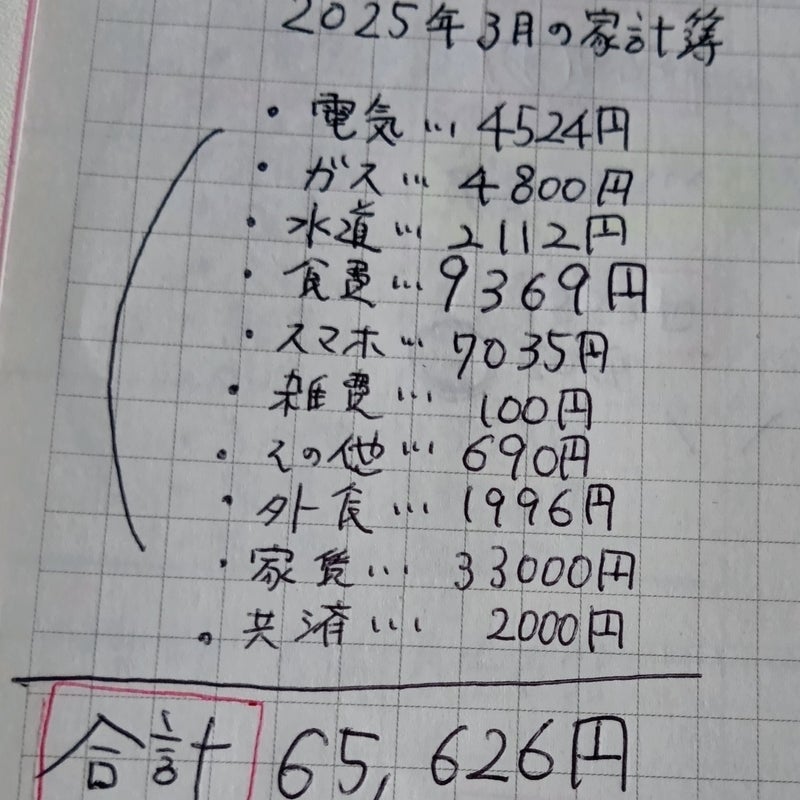 2025年3月の家計簿
・電気…4524円
・ガス…4800円
・水道…2112円
・食費…9369円
・スマホ…7035円
・雑費…100円
・その他…690円
・外食…1996円
・家賃…33000円
・共済…2000円
合計 65,626円